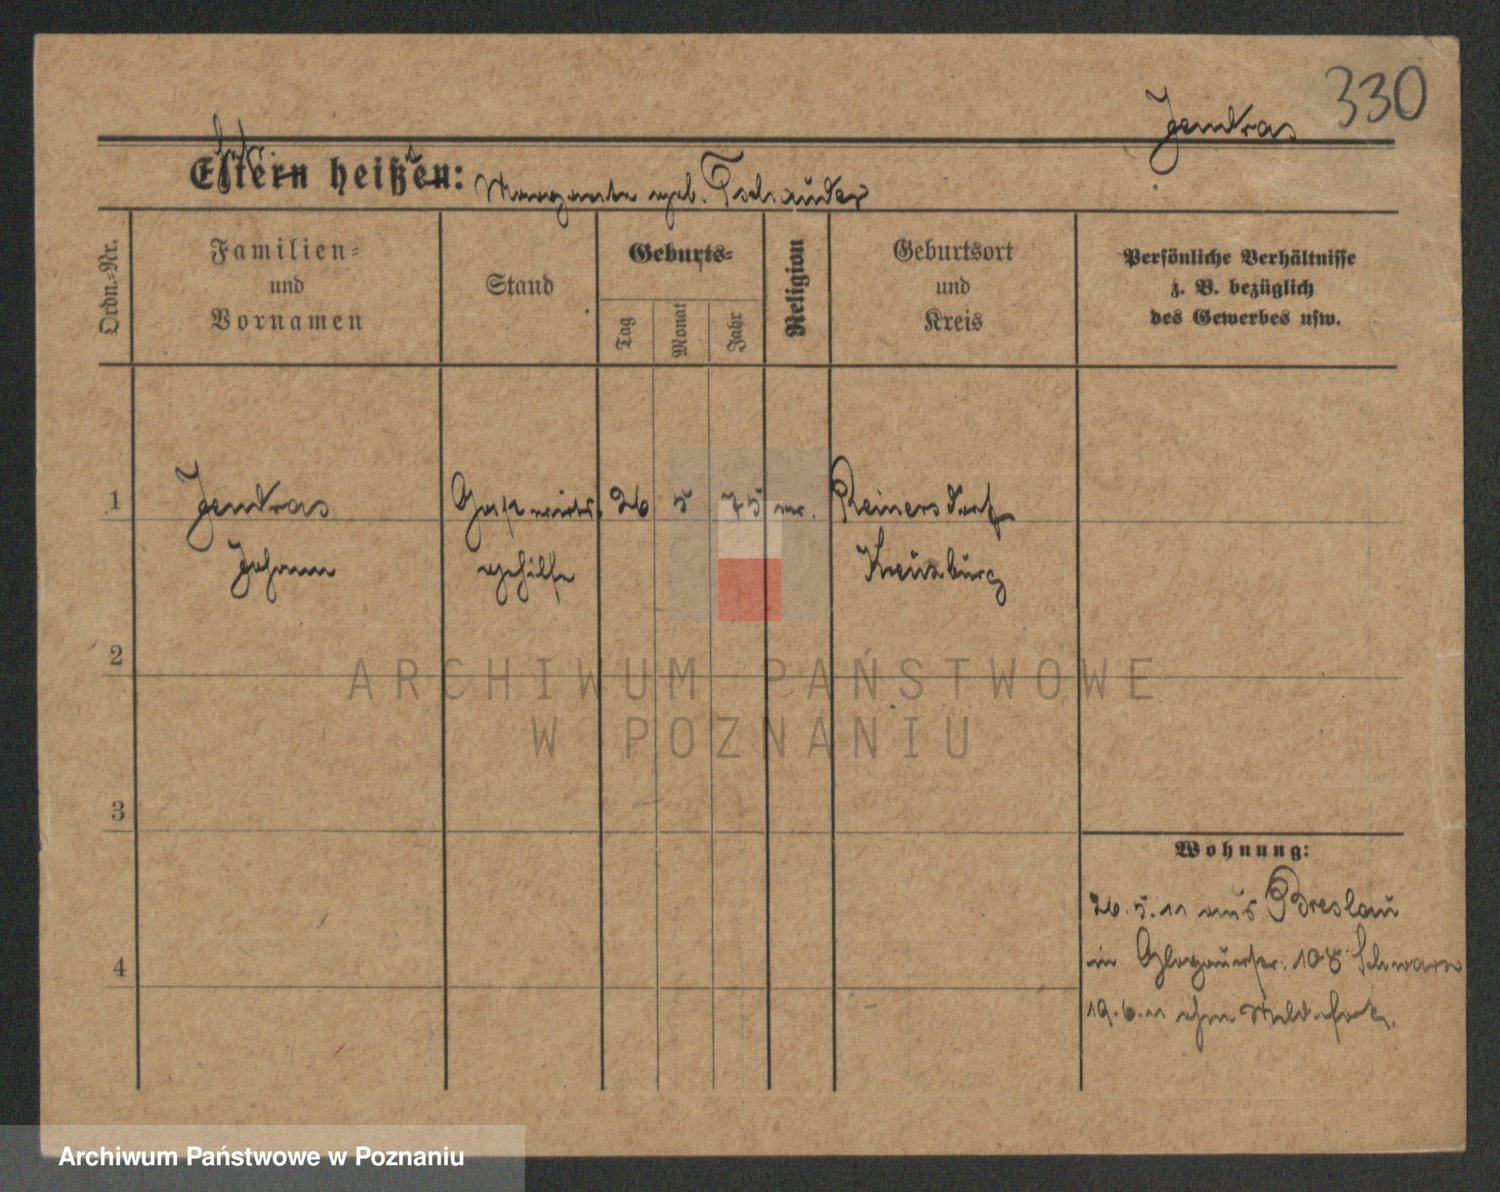 330
Jendras
Eltern heißen:
Frau
heißt
Margarete geb. Tschauder
Ordn.-Nr.
Familien-
und
Vornamen
Stand
Geburts-
Tag
Monat
Jahr
Religion
Geburtsort
und
Kreis
Persönliche Verhältnisse
z. B. bezüglich
des Gewerbes usw.
1
Jendras
Johann
Gastwirts
gehilfe
26
5
75
Reinersdorf
Kreuzburg
2
ARCHIWUM PAŃSTWOWE
W POZNANIU
3
Wohnung:
26.5.11 aus Breslau
in Glogauerstr. 108 Schwarz
4
19.6.11 ohne Meld. fort.
Archiwum Państwowe w Poznaniu